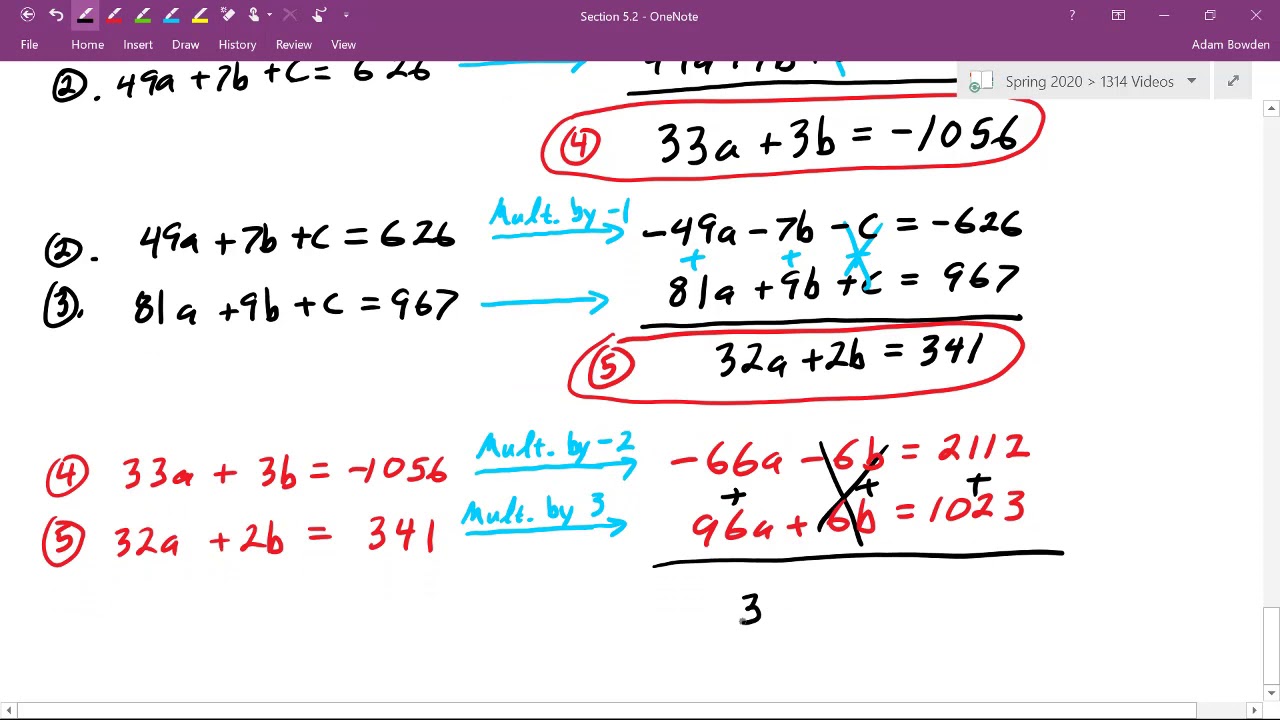 Section 5.2 - OneNote
File Home Insert Draw History Review View Adam Bowden
Spring 2020 > 1314 Videos
②. 49a + 7b + c = 626
④ 33a + 3b = -1056
②. 49a + 7b + c = 626 Mult. by -1 -49a - 7b - c = -626
+ + +
③. 81a + 9b + c = 967 81a + 9b + c = 967
⑤ 32a + 2b = 341
④ 33a + 3b = -1056 Mult. by -2 -66a - 6b = 2112
+ + +
⑤ 32a + 2b = 341 Mult. by 3 96a + 6b = 1023
3